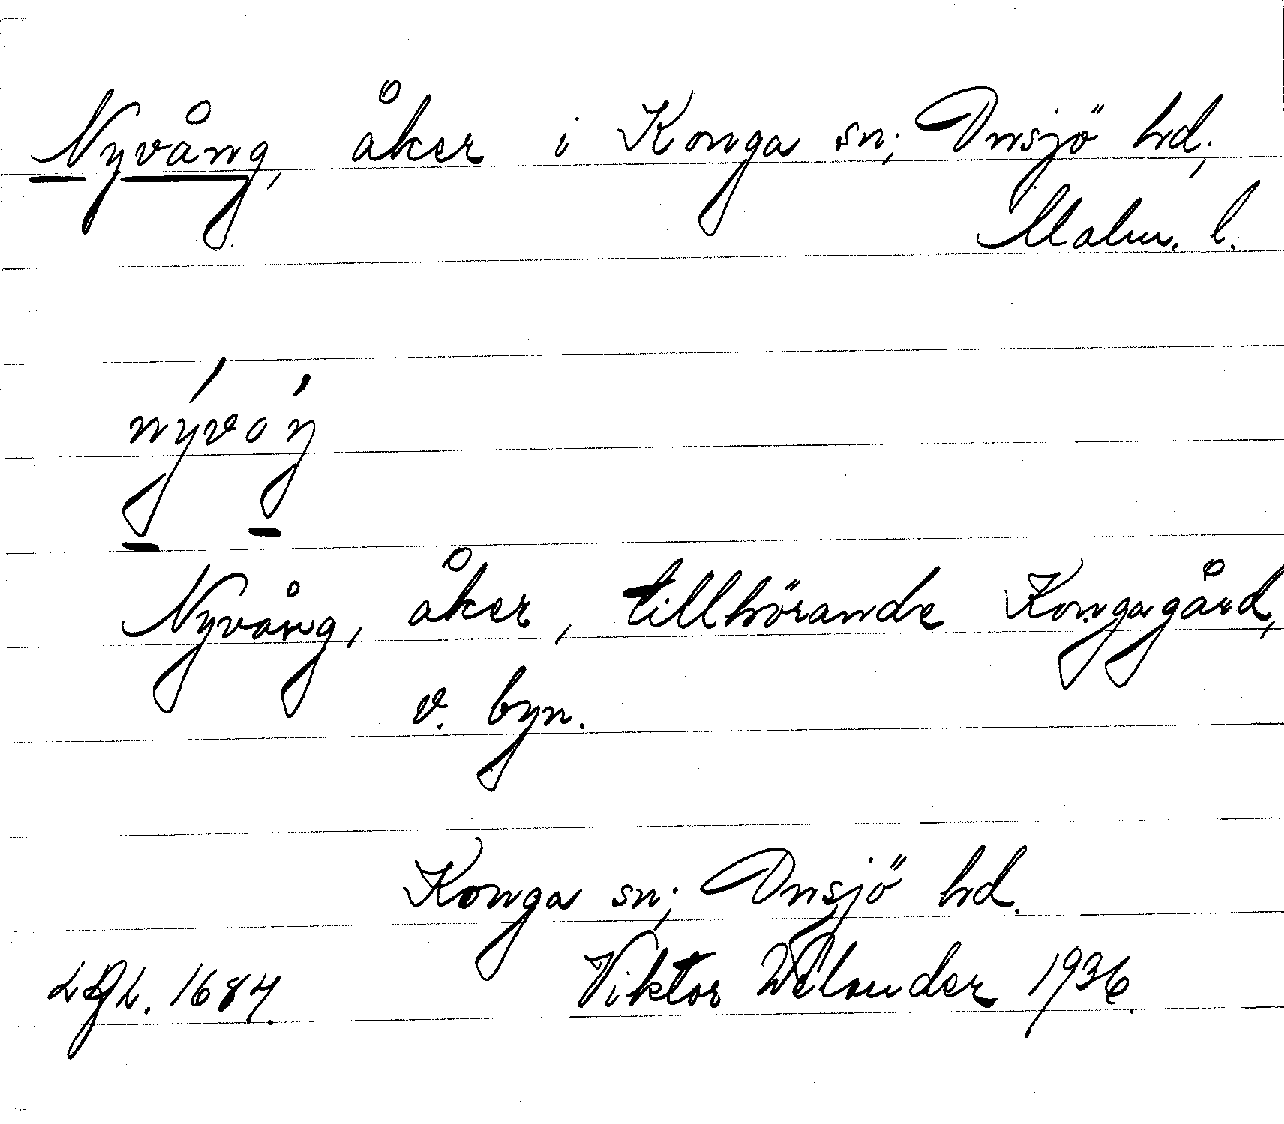 Nyvång, åker i Konga sn; Onsjö hd;
Malm. l.
nývóŋ
Nyvång, åker, tillhörande Kongagård,
v. byn.
Konga sn; Onsjö hd.
1684. Viktor Welander 1936.